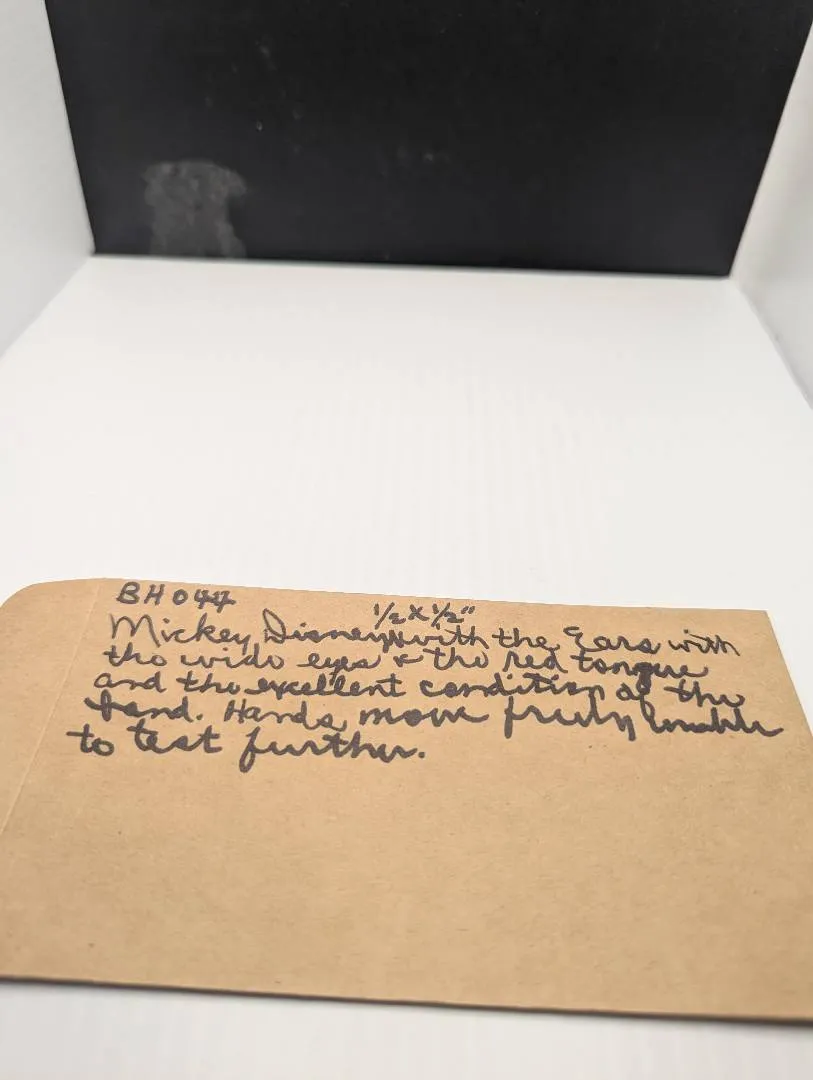 BH044
1/2 X 1/2"
Mickey Disney with the Ears with
the wide eyes & the red tongue
and the excellent condition of the
band. Hands move freely Unable
to test further.